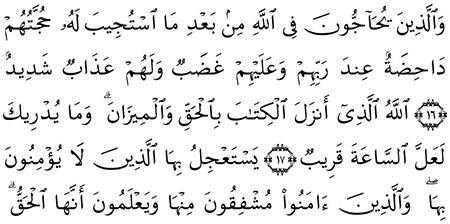 وَٱلَّذِينَ يُحَآجُّونَ فِى ٱللَّهِ مِنۢ بَعْدِ مَا ٱسْتُجِيبَ لَهُۥ حُجَّتُهُمْ
دَاحِضَةٌ عِندَ رَبِّهِمْ وَعَلَيْهِمْ غَضَبٌ وَلَهُمْ عَذَابٌ شَدِيدٌ
﴿١٦﴾ ٱللَّهُ ٱلَّذِىٓ أَنزَلَ ٱلْكِتَٰبَ بِٱلْحَقِّ وَٱلْمِيزَانَ ۗ وَمَا يُدْرِيكَ
لَعَلَّ ٱلسَّاعَةَ قَرِيبٌ ﴿١٧﴾ يَسْتَعْجِلُ بِهَا ٱلَّذِينَ لَا يُؤْمِنُونَ
بِهَا ۖ وَٱلَّذِينَ ءَامَنُوا۟ مُشْفِقُونَ مِنْهَا وَيَعْلَمُونَ أَنَّهَا ٱلْحَقُّ ۗ